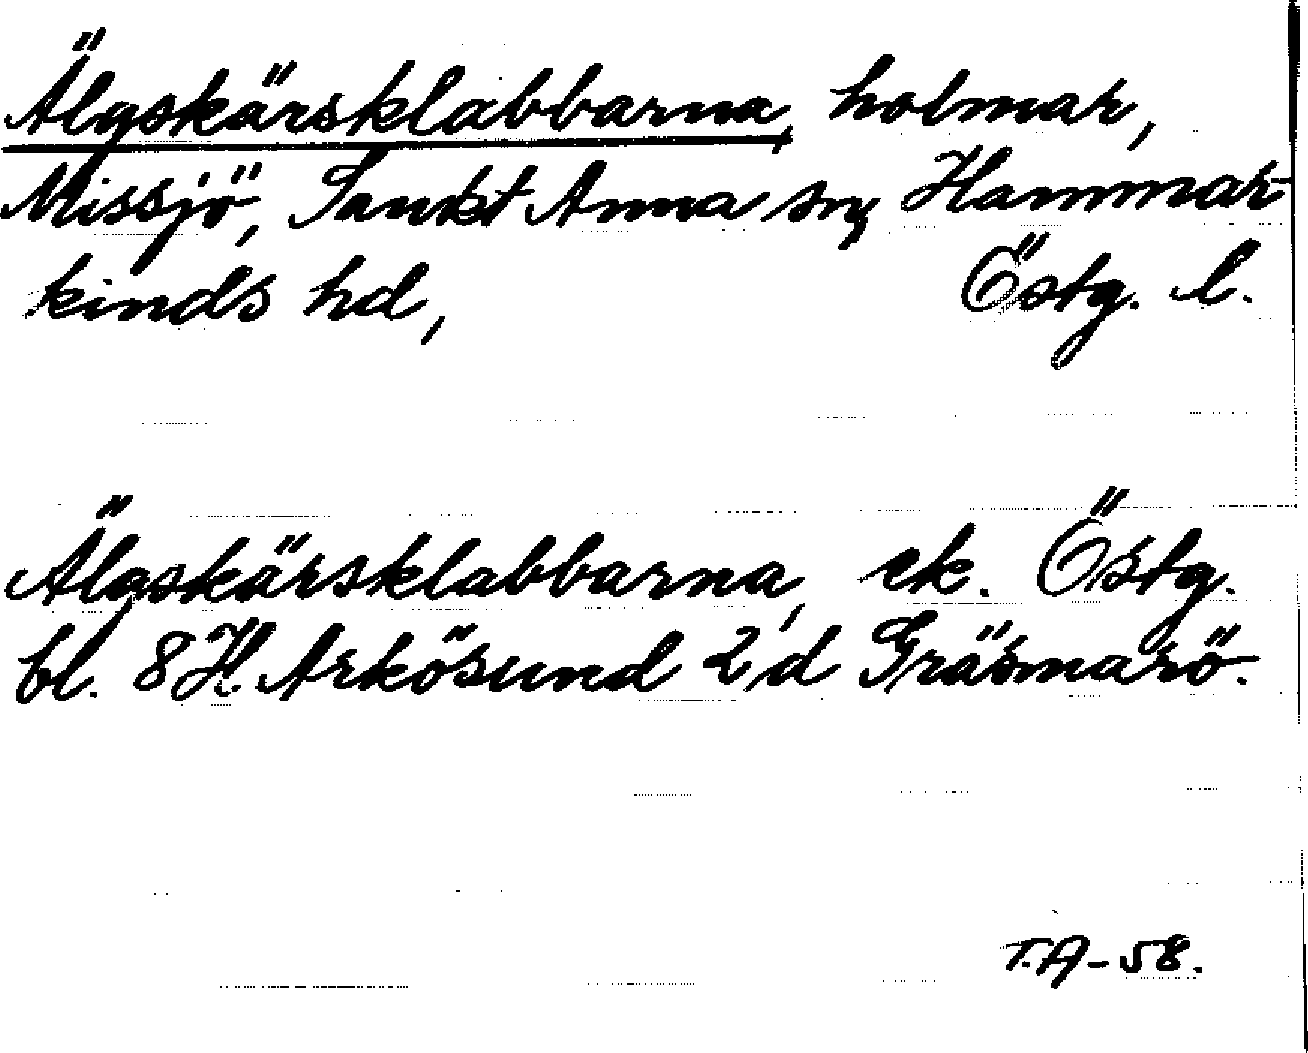 Älgskärsklabbarna, holmar,
Missjö, Sankt Anna sn, Hammar-
kinds hd, Östg. l.
Älgskärsklabbarna, ek. Östg.
bl. 8 H. Arkösund 2 d Gräsmarö.
T.A-58.